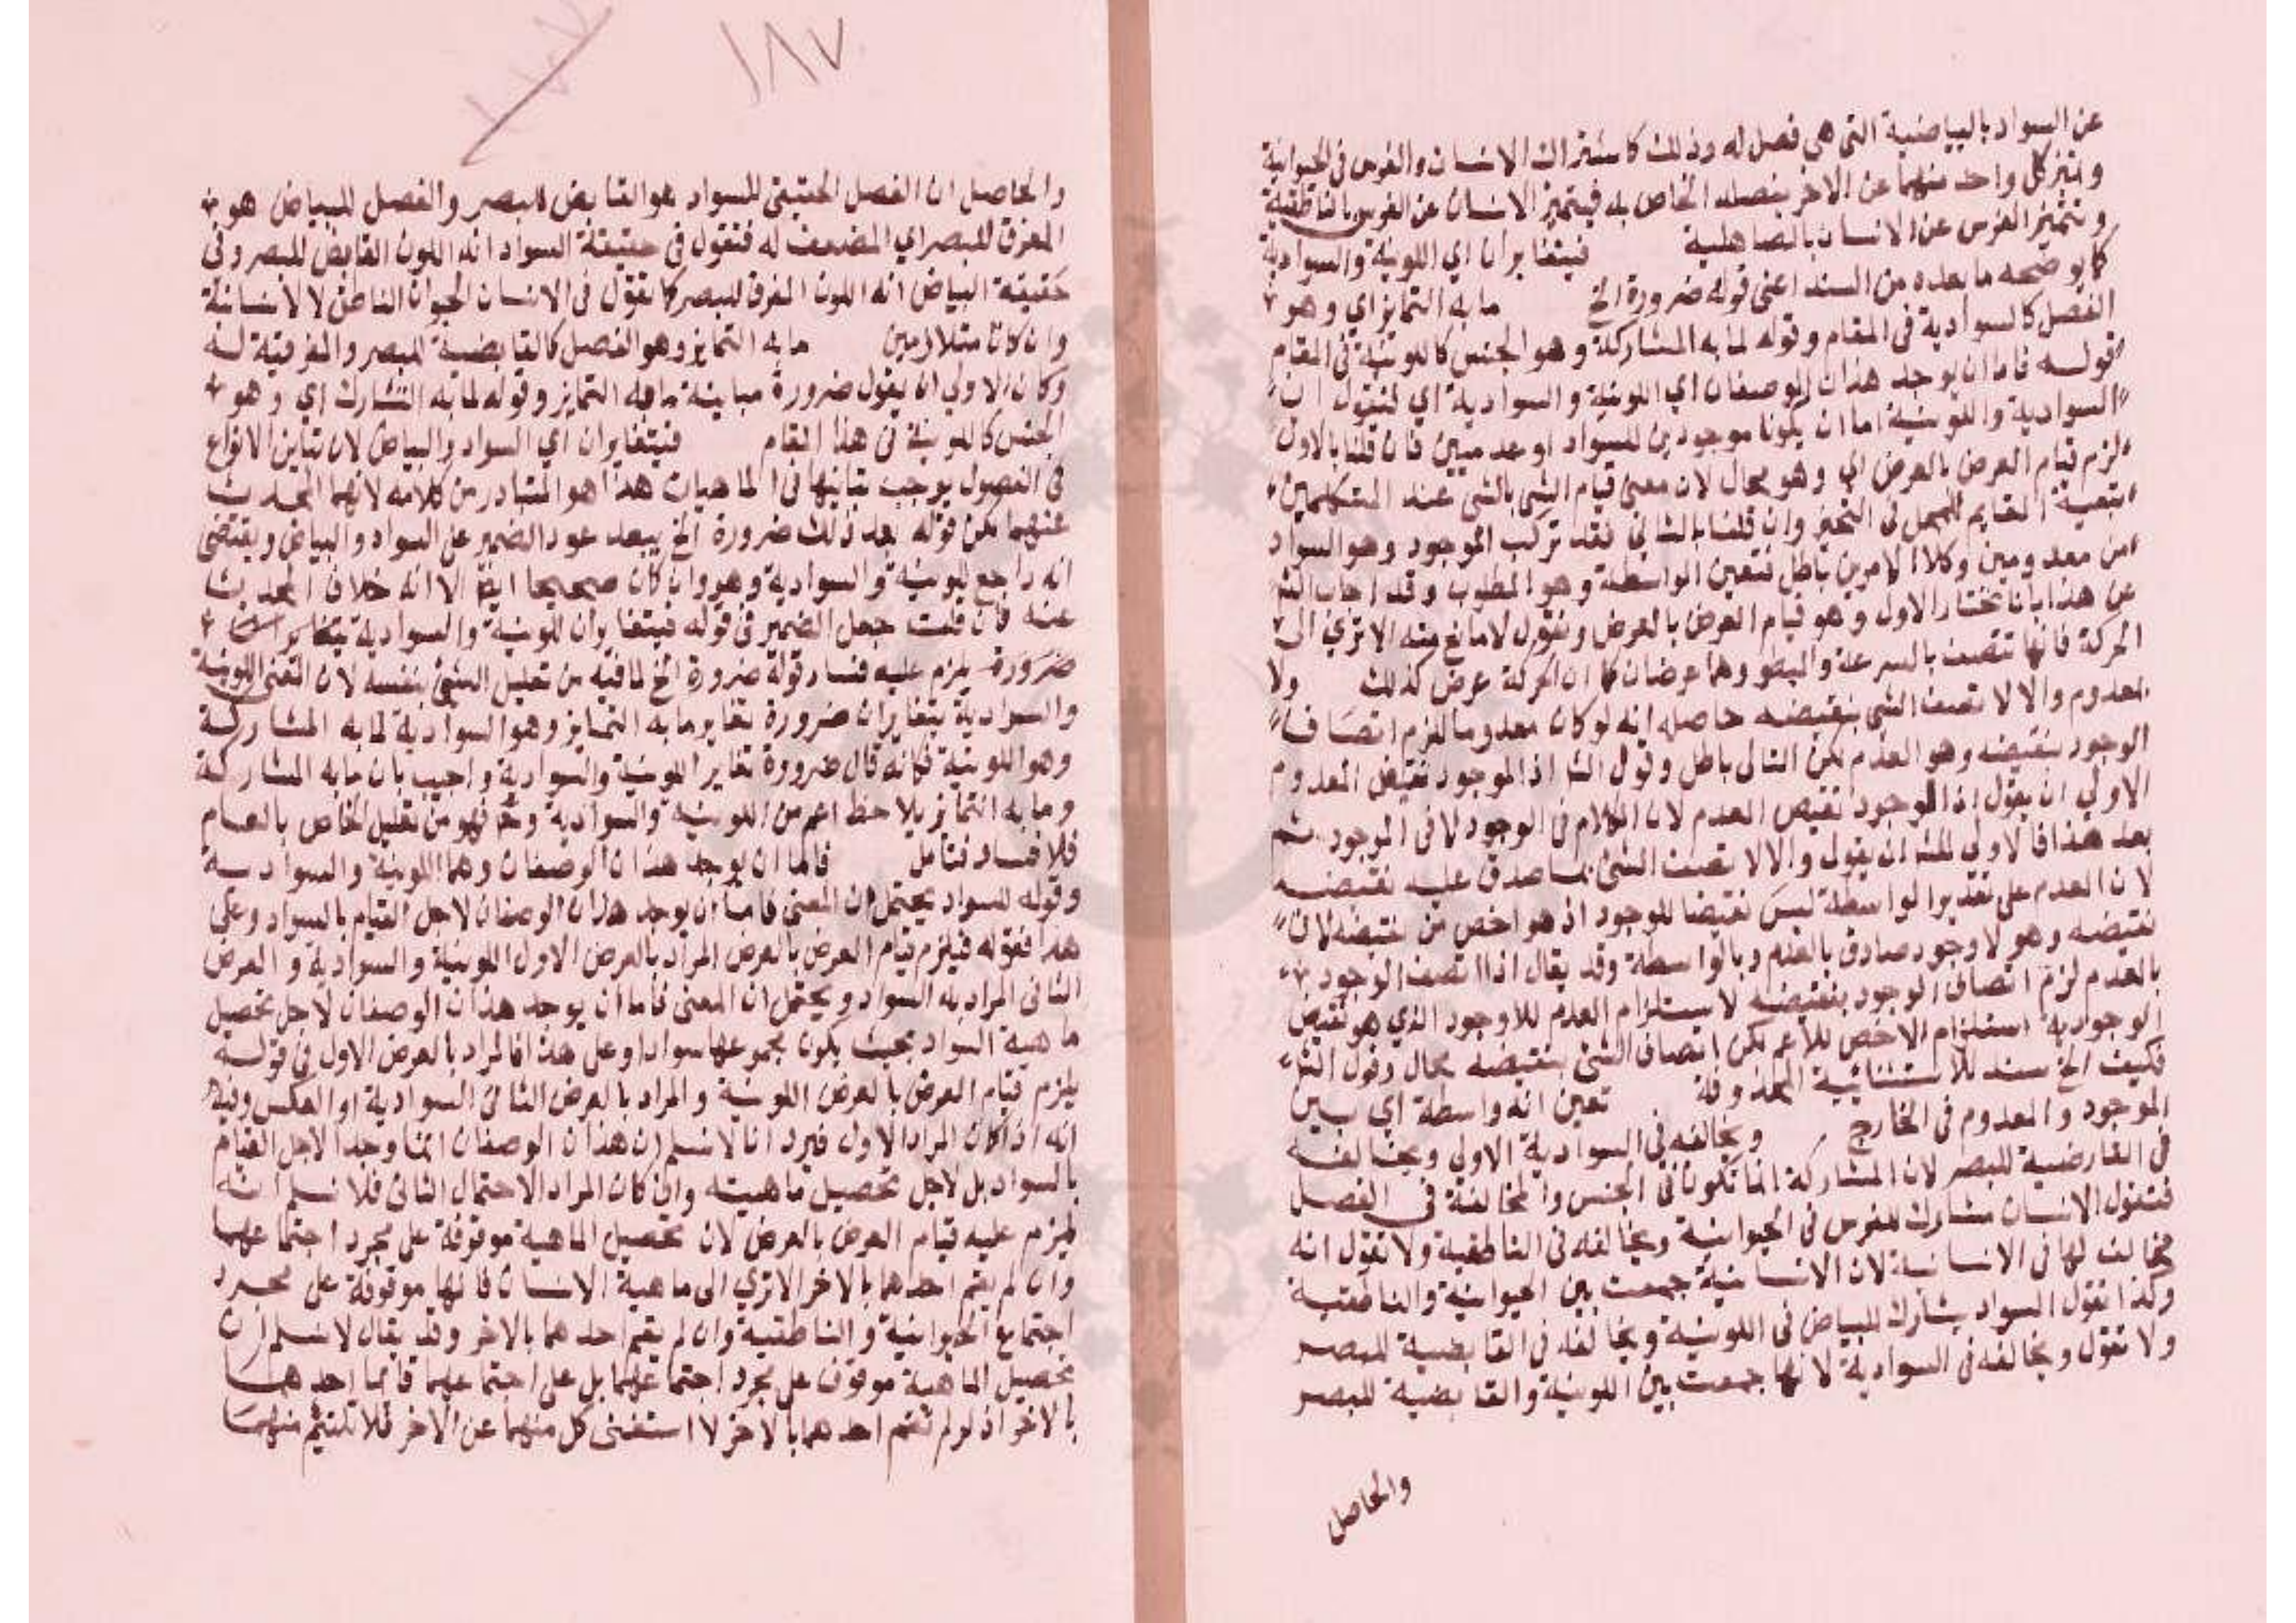 عن السواد بالبياضية التي هي فصل له وذلك كاشتراك الانسان والفرس في الحيوانية
وتميز كل واحد منهما عن الاخر بفصله الخاص به فيتميز الانسان عن الفرس بالناطقية
ويتميز الفرس عن الانسان بالصاهلية فيتغايران اي اللونية والسوادية
كما يوضحه ما بعده من السند اعني قوله ضرورة الخ ما به التمايز اي وهو
الفصل كالسوادية في المقام وقوله لما به المشاركة وهو الجنس كاللونية في المقام
قوله فاما ان يوجد هذان الوصفان اي اللونية والسوادية اي لنقول ان
السوادية واللونية اما ان يكونا موجودين للسواد او عدميين فان قلنا بالاول
لزم قيام العرض بالعرض اي وهو محال لان معنى قيام الشي بالشي عند المتكلمين
تبعية القايم للمحل في التحيز وان قلنا بالثاني فقد تركب الموجود وهو السواد
من معدومين وكلا الامرين باطل فتعين الواسطة وهو المطلوب وقد اجاب الش
عن هذا بانا نختار الاول وهو قيام العرض بالعرض ونقول لا مانع منه الا ترى الى
الحركة فانها تتصف بالسرعة والبطو وهما عرضان كما ان الحركة عرض كذلك ولا
معدوم والا لاتصف الشي بنقيضه حاصله انه لو كان معدوما للزم اتصاف
الوجود بنقيضه وهو العدم لكن التالي باطل وقول الش اذ الموجود نقيض المعدوم
الاولي ان يقول اذ الوجود نقيض العدم لان الكلام في الوجود لا في الموجود ثم
بعد هذا فالاولي للش ان يقول والا لاتصف الشي بما صدق عليه نقيضه
لان العدم على تقدير الواسطة ليس نقيضا للوجود اذ هو اخص من نقيضه لان
نقيضه وهو لا وجود صادق بالعدم وبالواسطة وقد يقال اذا اتصف الوجود
بالعدم لزم اتصاف الوجود بنقيضه لاستلزام العدم للاوجود الذي هو نقيض
الوجود استلزام الاخص للاعم لكن اتصاف الشي بنقيضه محال وقول الش
فكيف الخ سند للاستثنائية المحذوفة تعين انه واسطة اي بين
الموجود والمعدوم في الخارج ويخالفه في السوادية الاولي ويخالفه
في القابضية للبصر لان المشاركة انما تكون في الجنس والمخالفة في الفصل
فتقول الانسان مشارك للفرس في الحيوانية ويخالفه في الناطقية ولا تقول انه
مخالف لها في الانسانية لان الانسانية جمعت بين الحيوانية والناطقية
وكذا تقول السواد يشارك البياض في اللونية ويخالفه في القابضية للبصر
ولا تقول ويخالفه في السوادية لانها جمعت بين اللونية والقابضية للبصر
والحاصل
١٨٧
والحاصل ان الفصل الحقيقي للسواد هو القابض للبصر والفصل للبياض هو
المفرق للبصر اي المضعف له فتقول في حقيقة السواد انه اللون القابض للبصر وفي
حقيقة البياض انه اللون المفرق للبصر كما تقول في الانسان الحيوان الناطق لا الانسانية
وان كانا متلازمين ما به التمايز وهو الفصل كالقابضية للبصر والمفرقية له
وكان الاولي ان يقول ضرورة مباينة ما به التمايز وقوله لما به التشارك اي وهو
الجنس كاللونية في هذا المقام فيتغايران اي السواد والبياض لان تباين الانواع
في الفصول يوجب تباينها في الماهيات هذا هو المتبادر من كلامه لانهما المحدث
عنهما لكن قوله بعد ذلك ضرورة الخ يبعد عود الضمير عن السواد والبياض ويقتضي
انه راجع للونية والسوادية وهو وان كان صحيحا ايضا الا انه خلاف المحدث
عنه فان قلت جعل الضمير في قوله فيتغايران للونية والسوادية
ضرورة يلزم عليه فساد قوله ضرورة الخ لما فيه من تعليل الشي بنفسه لان المعنى اللونية
والسوادية يتغايران ضرورة تغاير ما به التمايز وهو السوادية لما به المشاركة
وهو اللونية فكانه قال ضرورة تغاير اللونية والسوادية واجيب بان ما به المشاركة
وما به التمايز يلاحظ اعم من اللونية والسوادية وح فهو من تعليل الخاص بالعام
فلا فساد فتامل فاما ان يوجد هذان الوصفان وهما اللونية والسوادية
وقوله للسواد يحتمل ان المعنى فاما ان يوجد هذان الوصفان لاجل القيام بالسواد وعلى
هذا فقوله فيلزم قيام العرض بالعرض المراد بالعرض الاول اللونية والسوادية والعرض
الثاني المراد به السواد ويحتمل ان المعنى فاما ان يوجد هذان الوصفان لاجل تحصيل
ماهية السواد بحيث يكون مجموعهما سوادا وعلى هذا فالمراد بالعرض الاول في قوله
يلزم قيام العرض بالعرض اللونية والمراد بالعرض الثاني السوادية او العكس وفيه
انه اذا كان المراد الاول فيرد انا لا نسلم ان هذان الوصفان انما وجدا لاجل القيام
بالسواد بل لاجل تحصيل ماهيته وان كان المراد الاحتمال الثاني فلا نسلم انه
يلزم عليه قيام العرض بالعرض لان تحصيل الماهية موقوفة على مجرد اجتماعهما
وان لم يقم احدهما بالاخر الا ترى الى ماهية الانسان فانها موقوفة على مجرد
اجتماع الحيوانية والناطقية وان لم يقم احدهما بالاخر وقد يقال لا نسلم ان
تحصيل الماهية موقوف على مجرد اجتماعهما بل على اجتماعهما قائما احدهما
بالاخر اذ لو لم يقم احدهما بالاخر لاستغنى كل منهما عن الاخر فلا تلتئم منهما